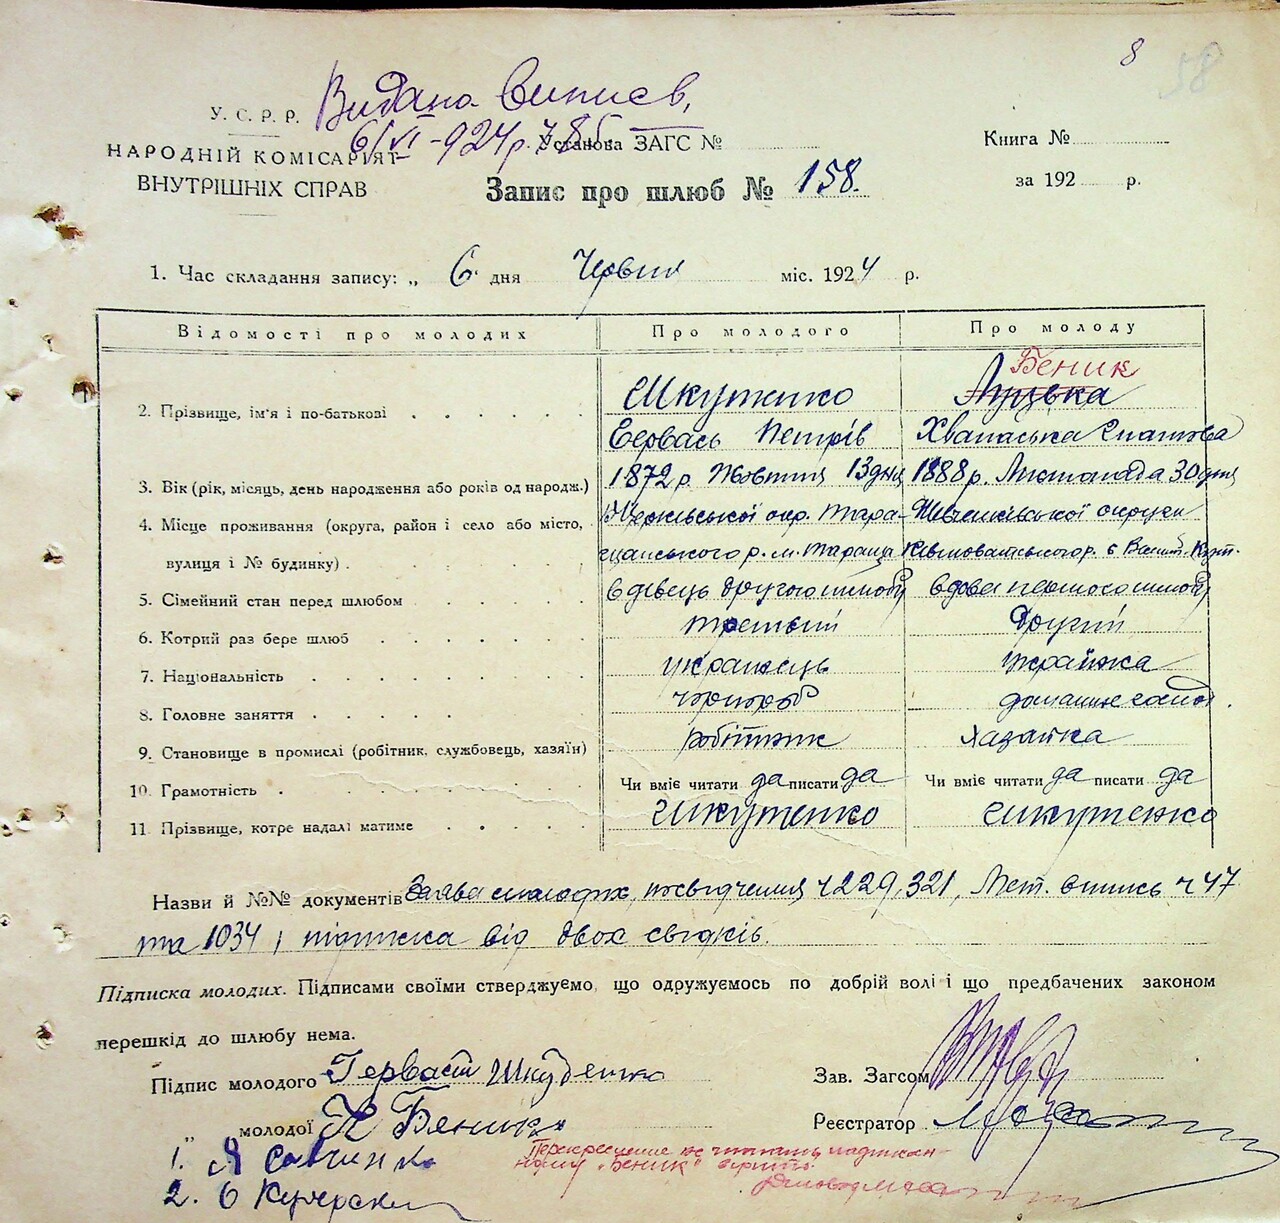 8
58
У. С. Р. Р.
Видано Випись,
6/VI-924 р. 785
НАРОДНІЙ КОМІСАРІЯТ
ВНУТРІШНІХ СПРАВ
Установа ЗАГС №
Книга №
за 192 р.
Запис про шлюб № 158.
1. Час складання запису: „ 6 дня Червня міс. 1924 р.
Відомості про молодих Про молодого Про молоду
Беник
2. Прізвище, ім'я і по-батькові Шкутенко Луцька
Гервась Петрів Хванаська Гнатова
3. Вік (рік, місяць, день народження або років од народж.) 1872 р. Жовтня 13 дня 1888 р. Листопада 30 дня
4. Місце проживання (округа, район і село або місто, окр. Тара- Шевченківської округи
вулиця і № будинку) щанського р. м. Тараща
5. Сімейний стан перед шлюбом вдівець другого шлюбу вдова першого шлюбу
6. Котрий раз бере шлюб третьий Другий
7. Національність українець українка
8. Головне заняття чорнороб
9. Становище в промислі (робітник, службовець, хазяїн) робітник Хазяйка
10. Грамотність Чи вміє читати да писати да Чи вміє читати да писати да
11. Прізвище, котре надалі матиме Шкутенко Шкутенко
Назви й №№ документів Заява молодих, посвідчення ч 229, 321, Мет. випись ч 47
та 1034 і підписка від двох свідків.
Підписка молодих. Підписами своїми стверджуємо, що одружуємось по добрій волі і що предбачених законом
перешкід до шлюбу нема.
Підпис молодого Герваси Шкуденко
Зав. Загсом
„ молодої Х Беник
Реєстратор
1. Я Савченко
Перекреслене не читать надписан-
ному „Беник" вірить.
2. О